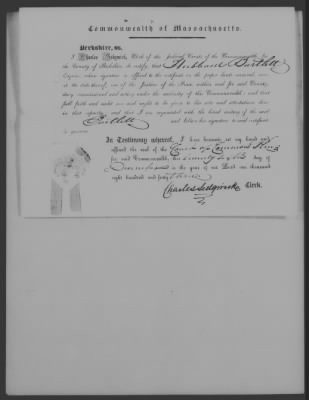 Commonwealth of Massachusetts.
Berkshire, ss.
I Charles Sedgwick, Clerk of the Judicial Courts of the Commonwealth for
the County of Berkshire, do certify, that Hubbard Bartlett
Esquire, whose signature is affixed to the certificate on the paper hereto annexed, was
at the date thereof, one of the Justices of the Peace within and for said County,
duly commissioned and acting under the authority of this Commonwealth, and that
full faith and credit are and ought to be given to his acts and attestations done
in that capacity, and that I am acquainted with the hand writing of the said
Bartlett and believe his signature to said certificate
is genuine.
In Testimony whereof, I have hereunto set my hand and
affixed the seal of the Court of Common Pleas
for said Commonwealth, this twenty sixth day of
December in the year of our Lord one thousand
eight hundred and forty three
Charles Sedgwick Clerk.